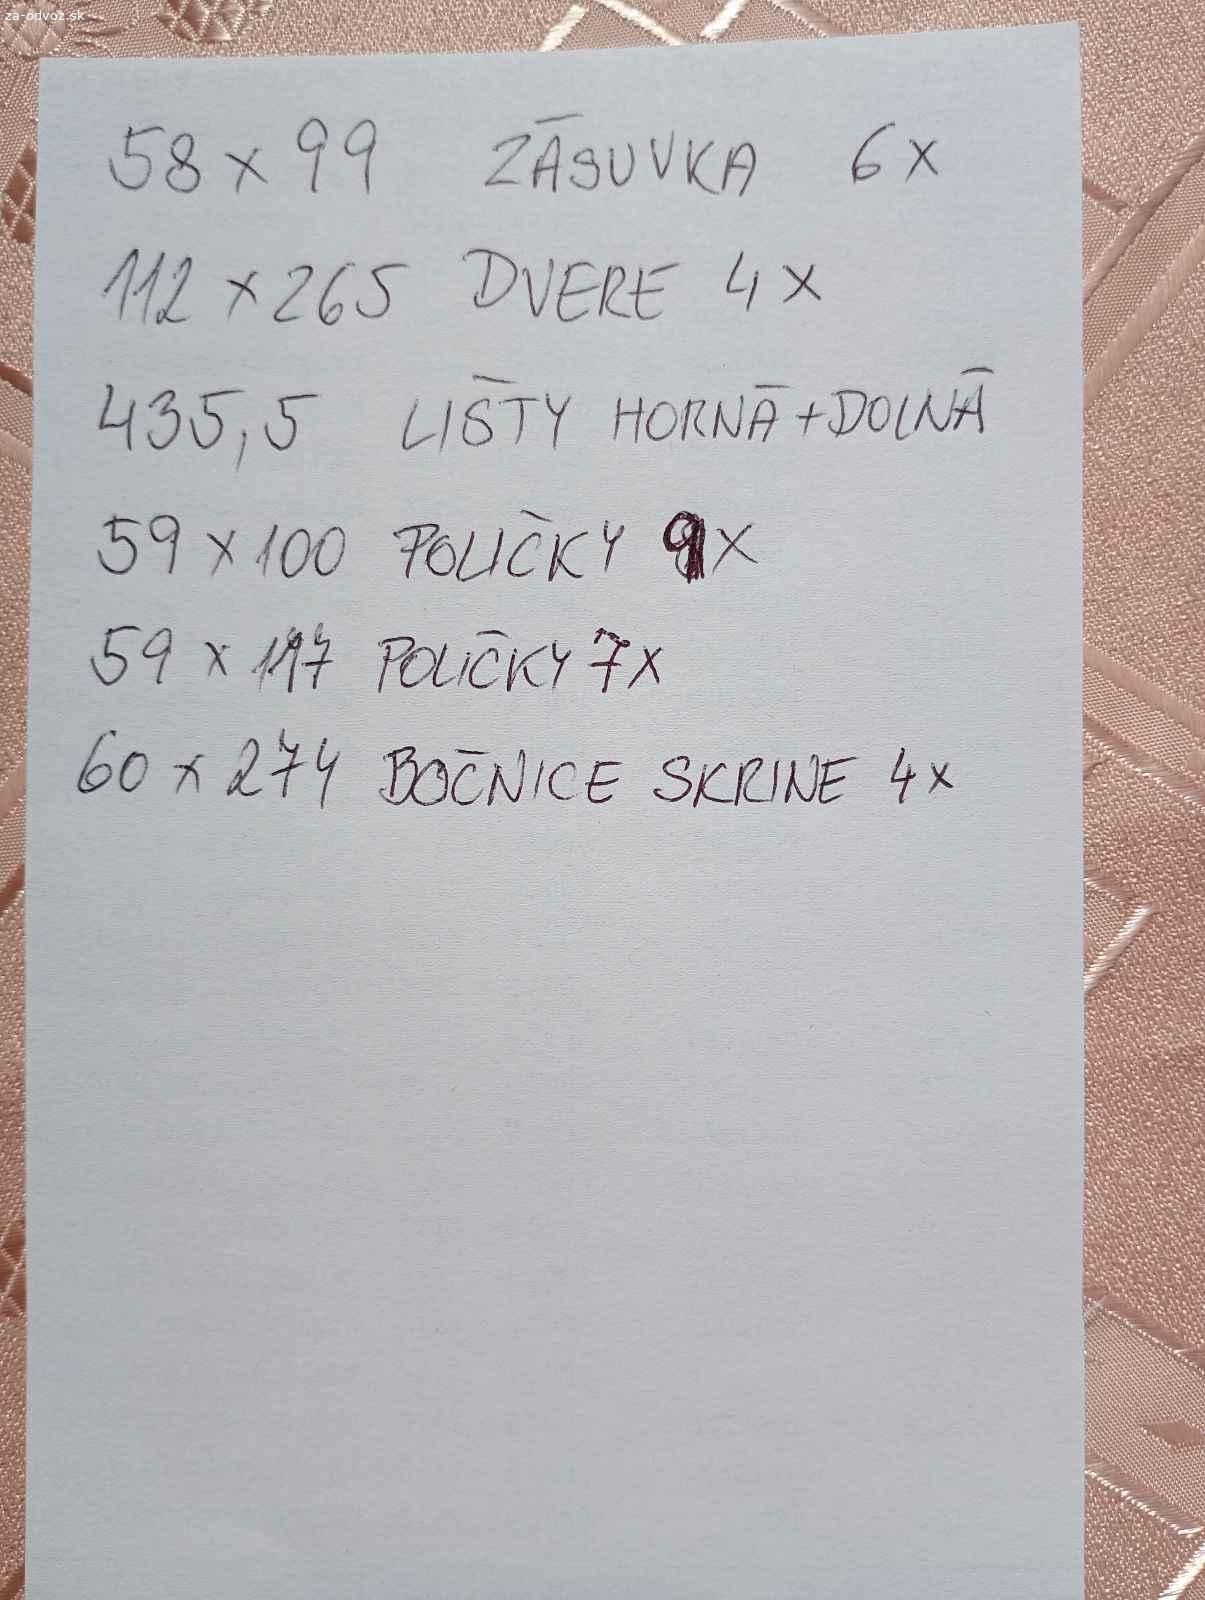 za-odvoz.sk
58 x 99 ZÁSUVKA 6 x
112 x 265 DVERE 4 x
435,5 LIŠTY HORNÁ + DOLNÁ
59 x 100 POLIČKY 9x
59 x POLIČKY 7x
60 x 274 BOČNICE SKRINE 4x